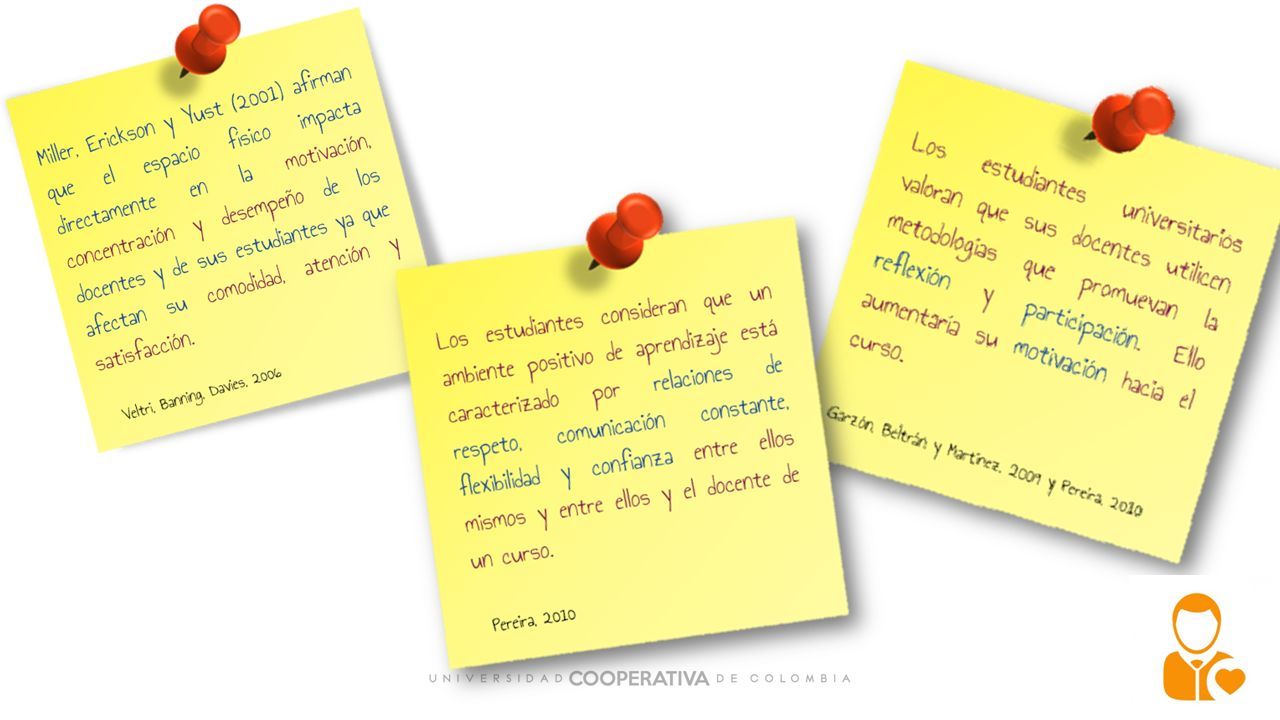 Miller, Erickson y Yust (2001) afirman
que el espacio físico impacta
directamente en la motivación,
concentración y desempeño de los
docentes y de sus estudiantes ya que
afectan su comodidad, atención y
satisfacción.
Veltri, Banning, Davies, 2006
Los estudiantes consideran que un
ambiente positivo de aprendizaje está
caracterizado por relaciones de
respeto, comunicación constante,
flexibilidad y confianza entre ellos
mismos y entre ellos y el docente de
un curso.
Pereira, 2010
Los estudiantes universitarios
valoran que sus docentes utilicen
metodologías que promuevan la
reflexión y participación. Ello
aumentaría su motivación hacia el
curso.
Garzón, Beltrán y Martínez, 2009 y Pereira, 2010
UNIVERSIDAD COOPERATIVA DE COLOMBIA